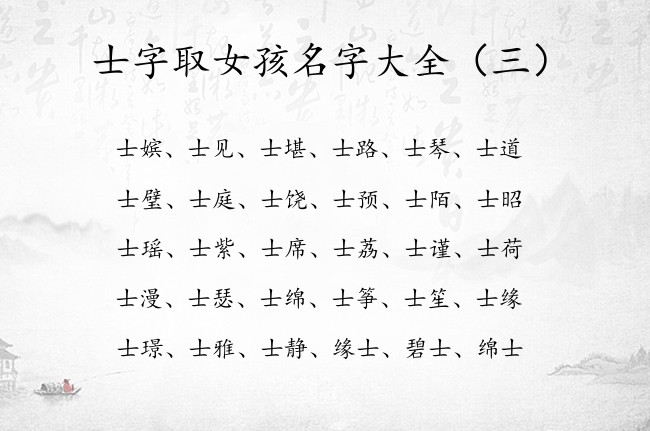 士字取女孩名字大全（三）
士嫔、士见、士堪、士路、士琴、士道
士璧、士庭、士饶、士预、士陌、士昭
士瑶、士紫、士席、士荔、士谨、士荷
士漫、士瑟、士绵、士筝、士笙、士缘
士璟、士雅、士静、缘士、碧士、绵士